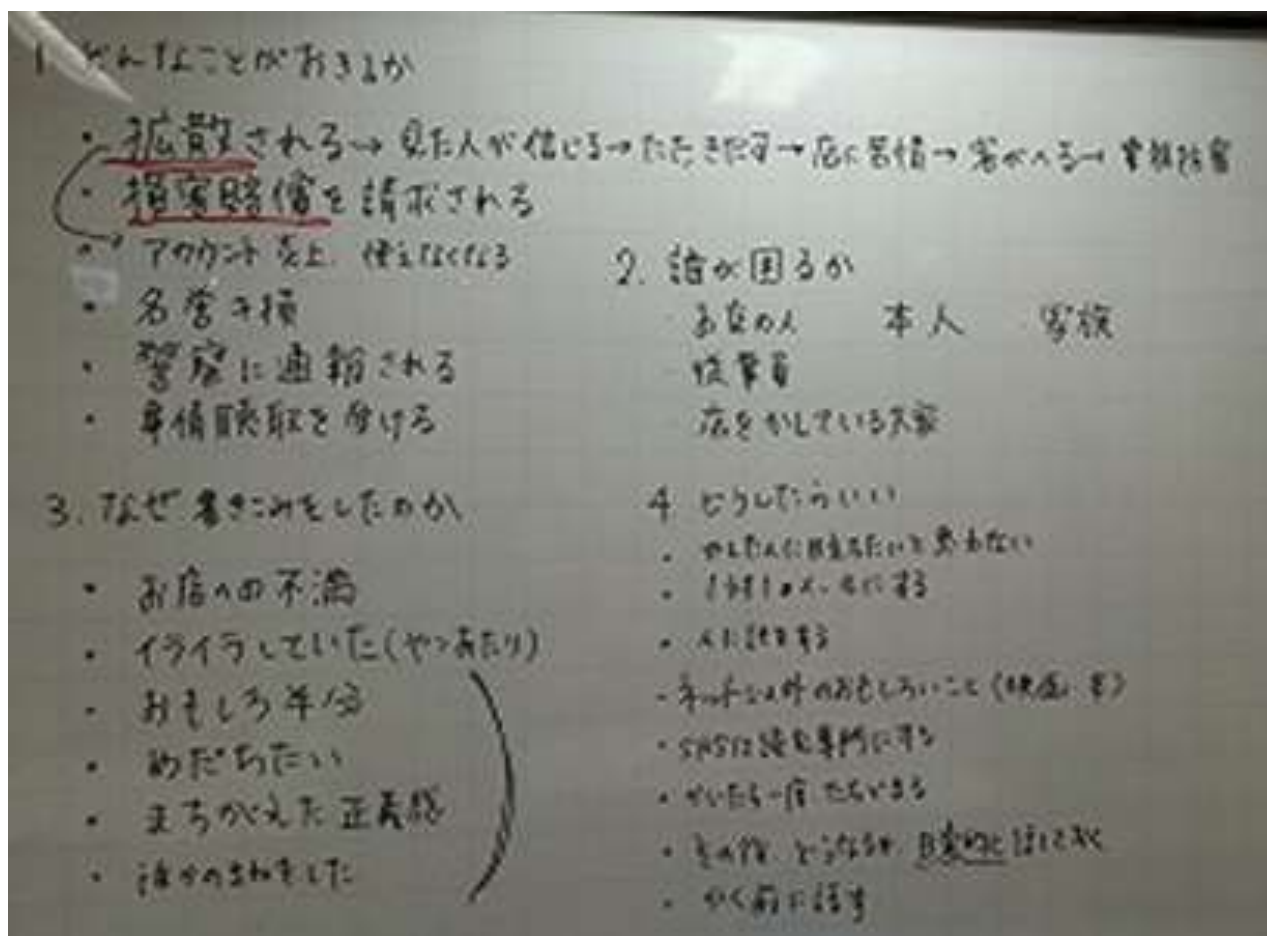 1. どんなことがおきるか
・拡散される→見た人が信じる→たたきだす→店に苦情→客がへる→業務妨害
・損害賠償を請求される
・アカウント炎上 使えなくなる
・名誉き損
・警察に通報される
・事情聴取を受ける
2. 誰が困るか
お店の人 本人 家族
従業員
店をかしている大家
3. なぜ書きこみをしたのか
・お店への不満
・イライラしていた(やつあたり)
・おもしろ半分
・めだちたい
・まちがえた正義感
・誰かのまねをした
4 どうしたらいい
目立ちたいと思わない
にする
・人に話をする
・ネット以外のおもしろいこと(映画 等)
・SNSは 専門にする
・かいたら一度たちどまる
・その後 どうなるか
・かく前に話す